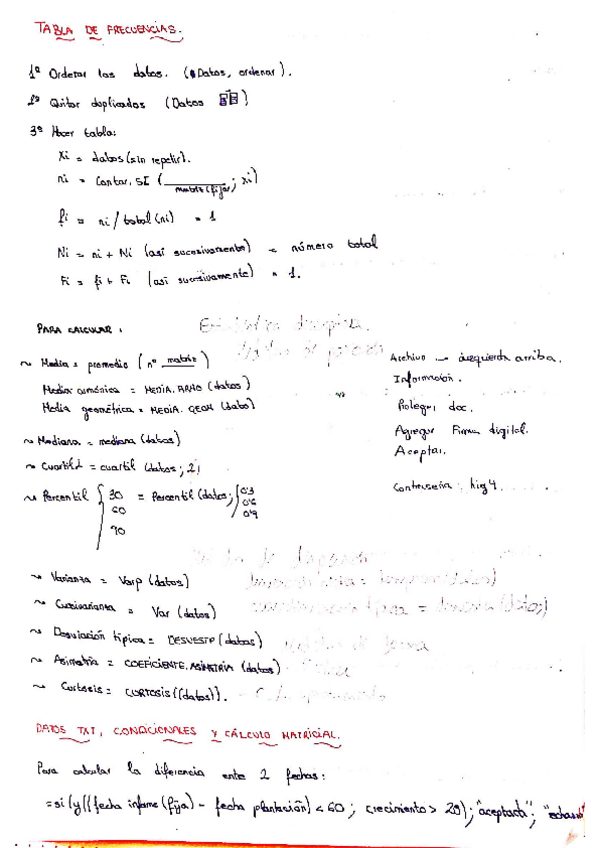 TABLA DE FRECUENCIAS.
1º Ordenar los datos. (Datos, ordenar).
2º Quitar duplicados (Datos )
3º Hacer tabla:
Xi = datos (sin repetir).
ni = Contar.SI ( matriz (fijar) ; xi)
fi = ni / total (ni) = 1
Ni = ni + Ni (así sucesivamente) = número total
Fi = fi + Fi (así sucesivamente) = 1.
PARA CALCULAR:
~ Media = promedio (nº matriz)
Media armónica = MEDIA.ARMO (datos)
Media geométrica = MEDIA.GEOM (dato)
~ Mediana = mediana (datos)
~ Cuartil = cuartil (datos; 2)
~ Percentil { 30 = Percentil (datos; { 0'3
60 0'6
90 0'9
Archivo → izquierda arriba.
Información.
Proteger doc.
Agregar Firma digital.
Aceptar.
Contraseña: hig4.
~ Varianza = Varp (datos)
~ Cuasivarianza = Var (datos)
~ Desviación típica = DESVESTP (datos)
~ Asimetría = COEFICIENTE.ASIMETRIA (datos)
~ Curtosis = CURTOSIS((datos)).
DATOS TXT, CONDICIONALES Y CÁLCULO MATRICIAL.
Para calcular la diferencia entre 2 fechas:
=si(y((fecha informe (fija) - fecha plantación) < 60; crecimiento > 20); "aceptada";